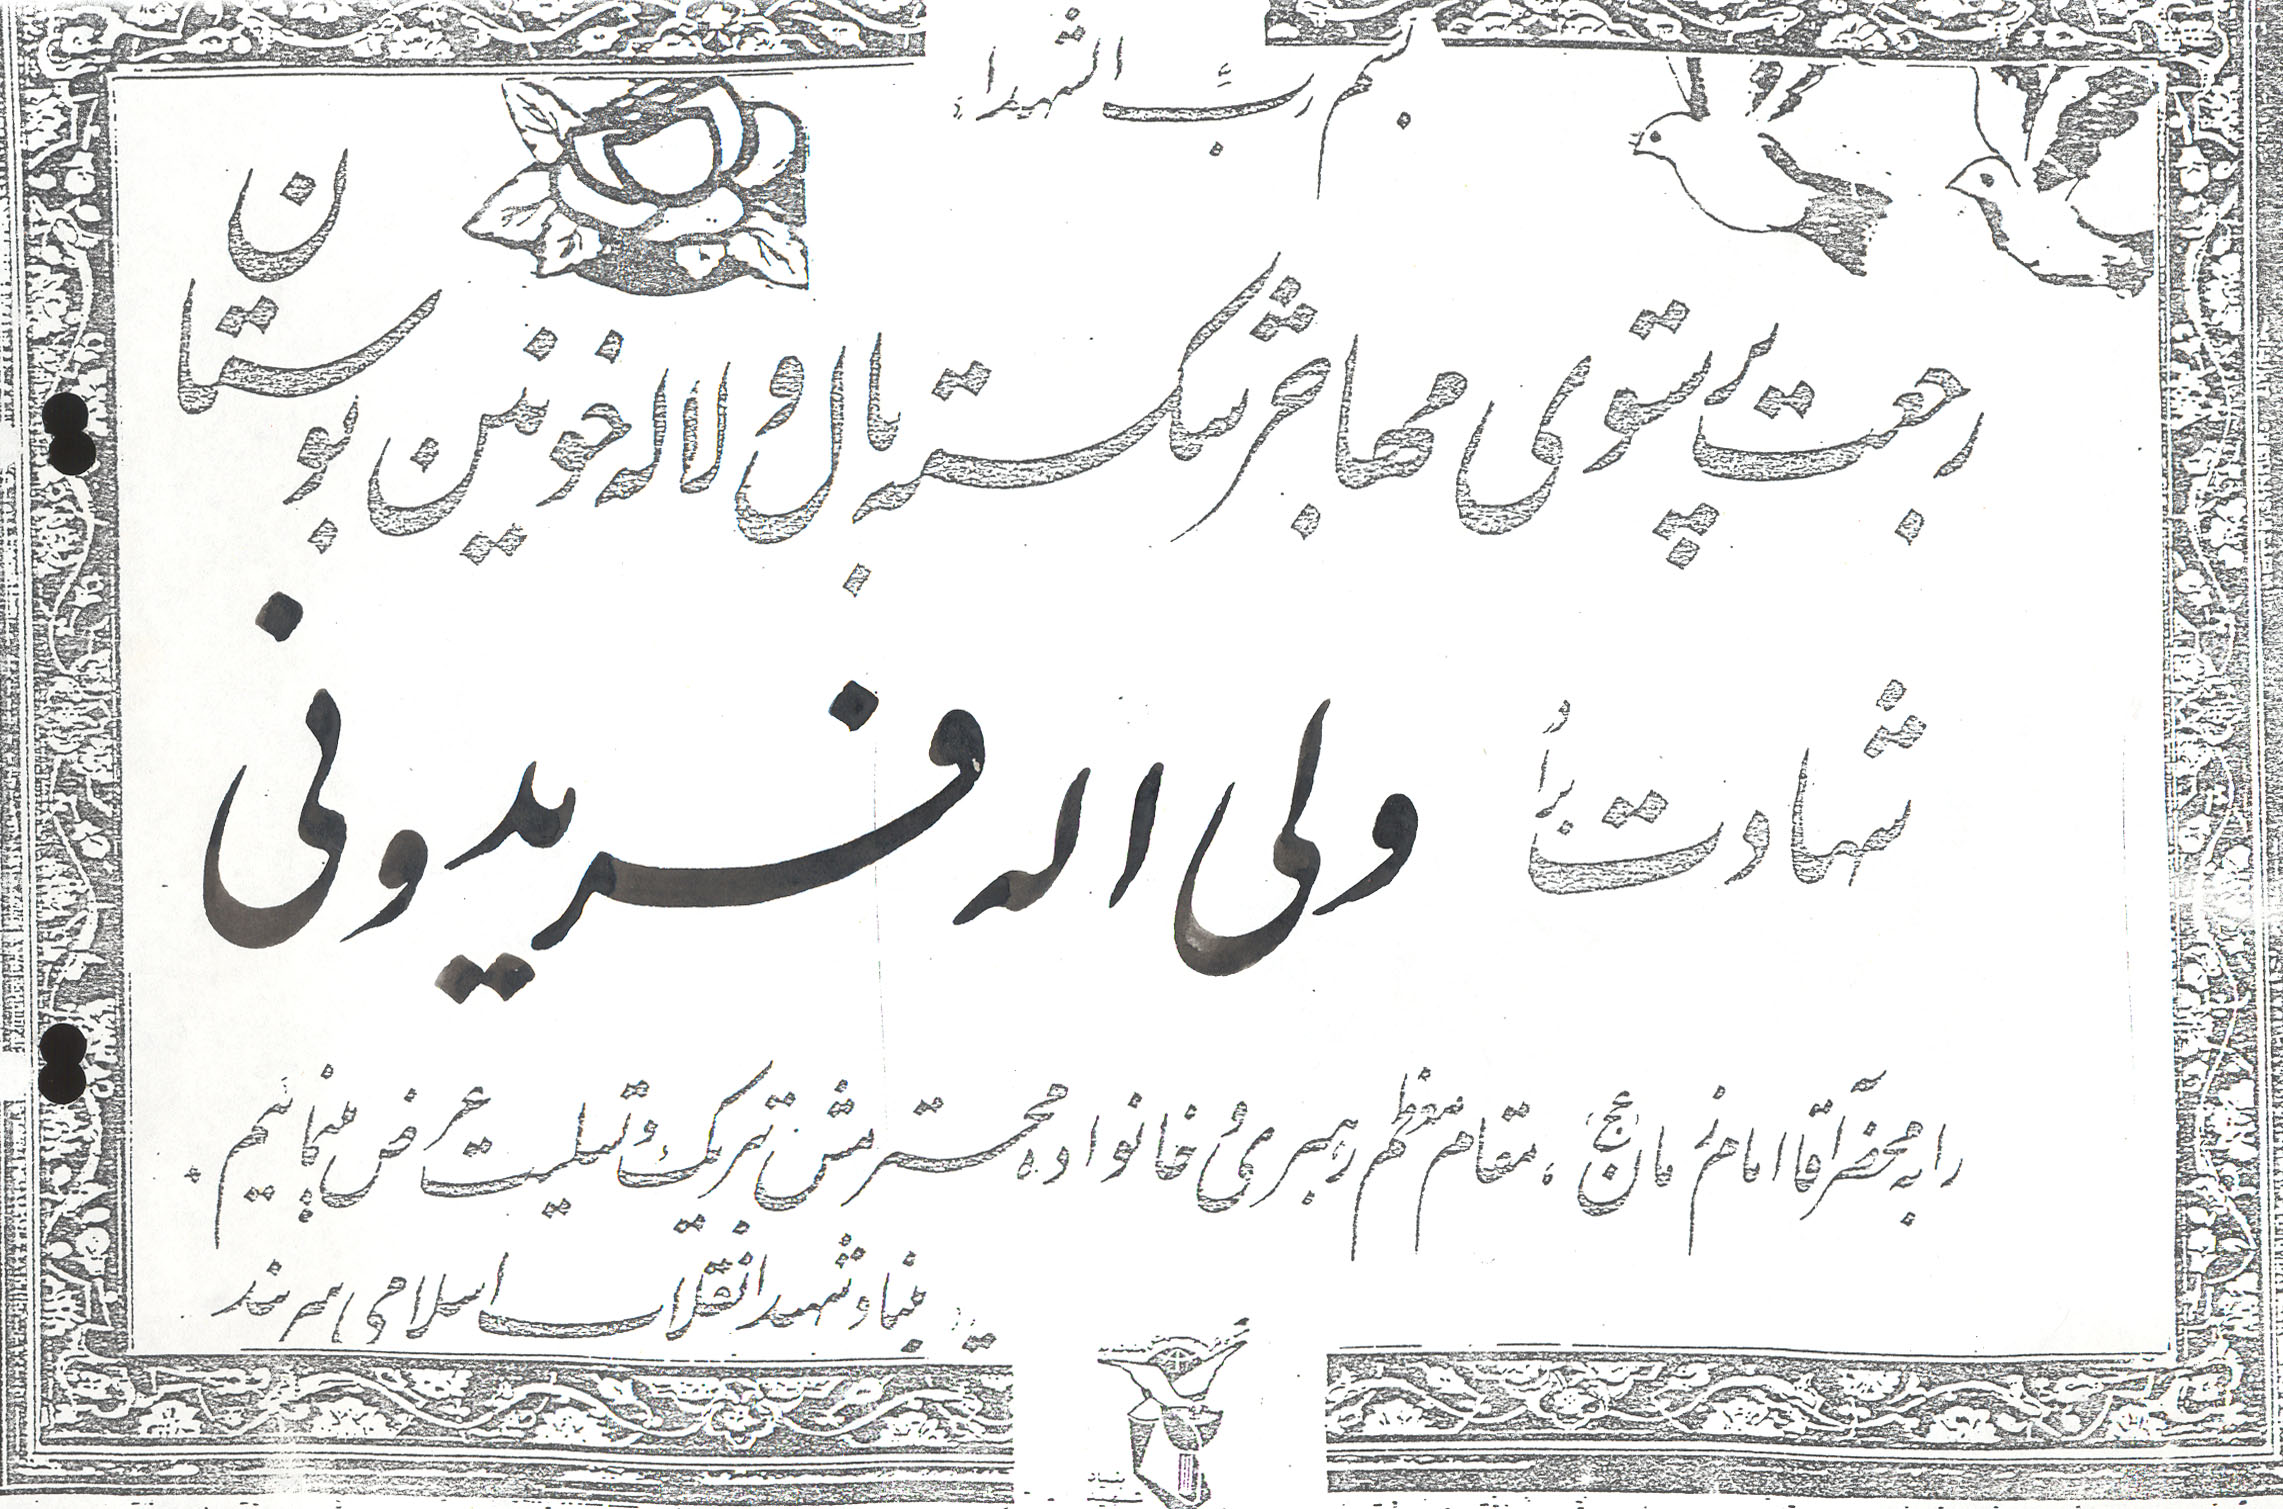 بسم ربّ الشهداء
رجعت پرستوی مهاجر شکسته بال و لاله خونین بوستان
شهادت برادر ولی اله فریدونی
را به محضر آقا امام زمان (عج)، مقام معظم رهبری و خانواده محترمش تبریک و تسلیت عرض می‌نمائیم.
بنیاد شهید انقلاب اسلامی
بنیاد